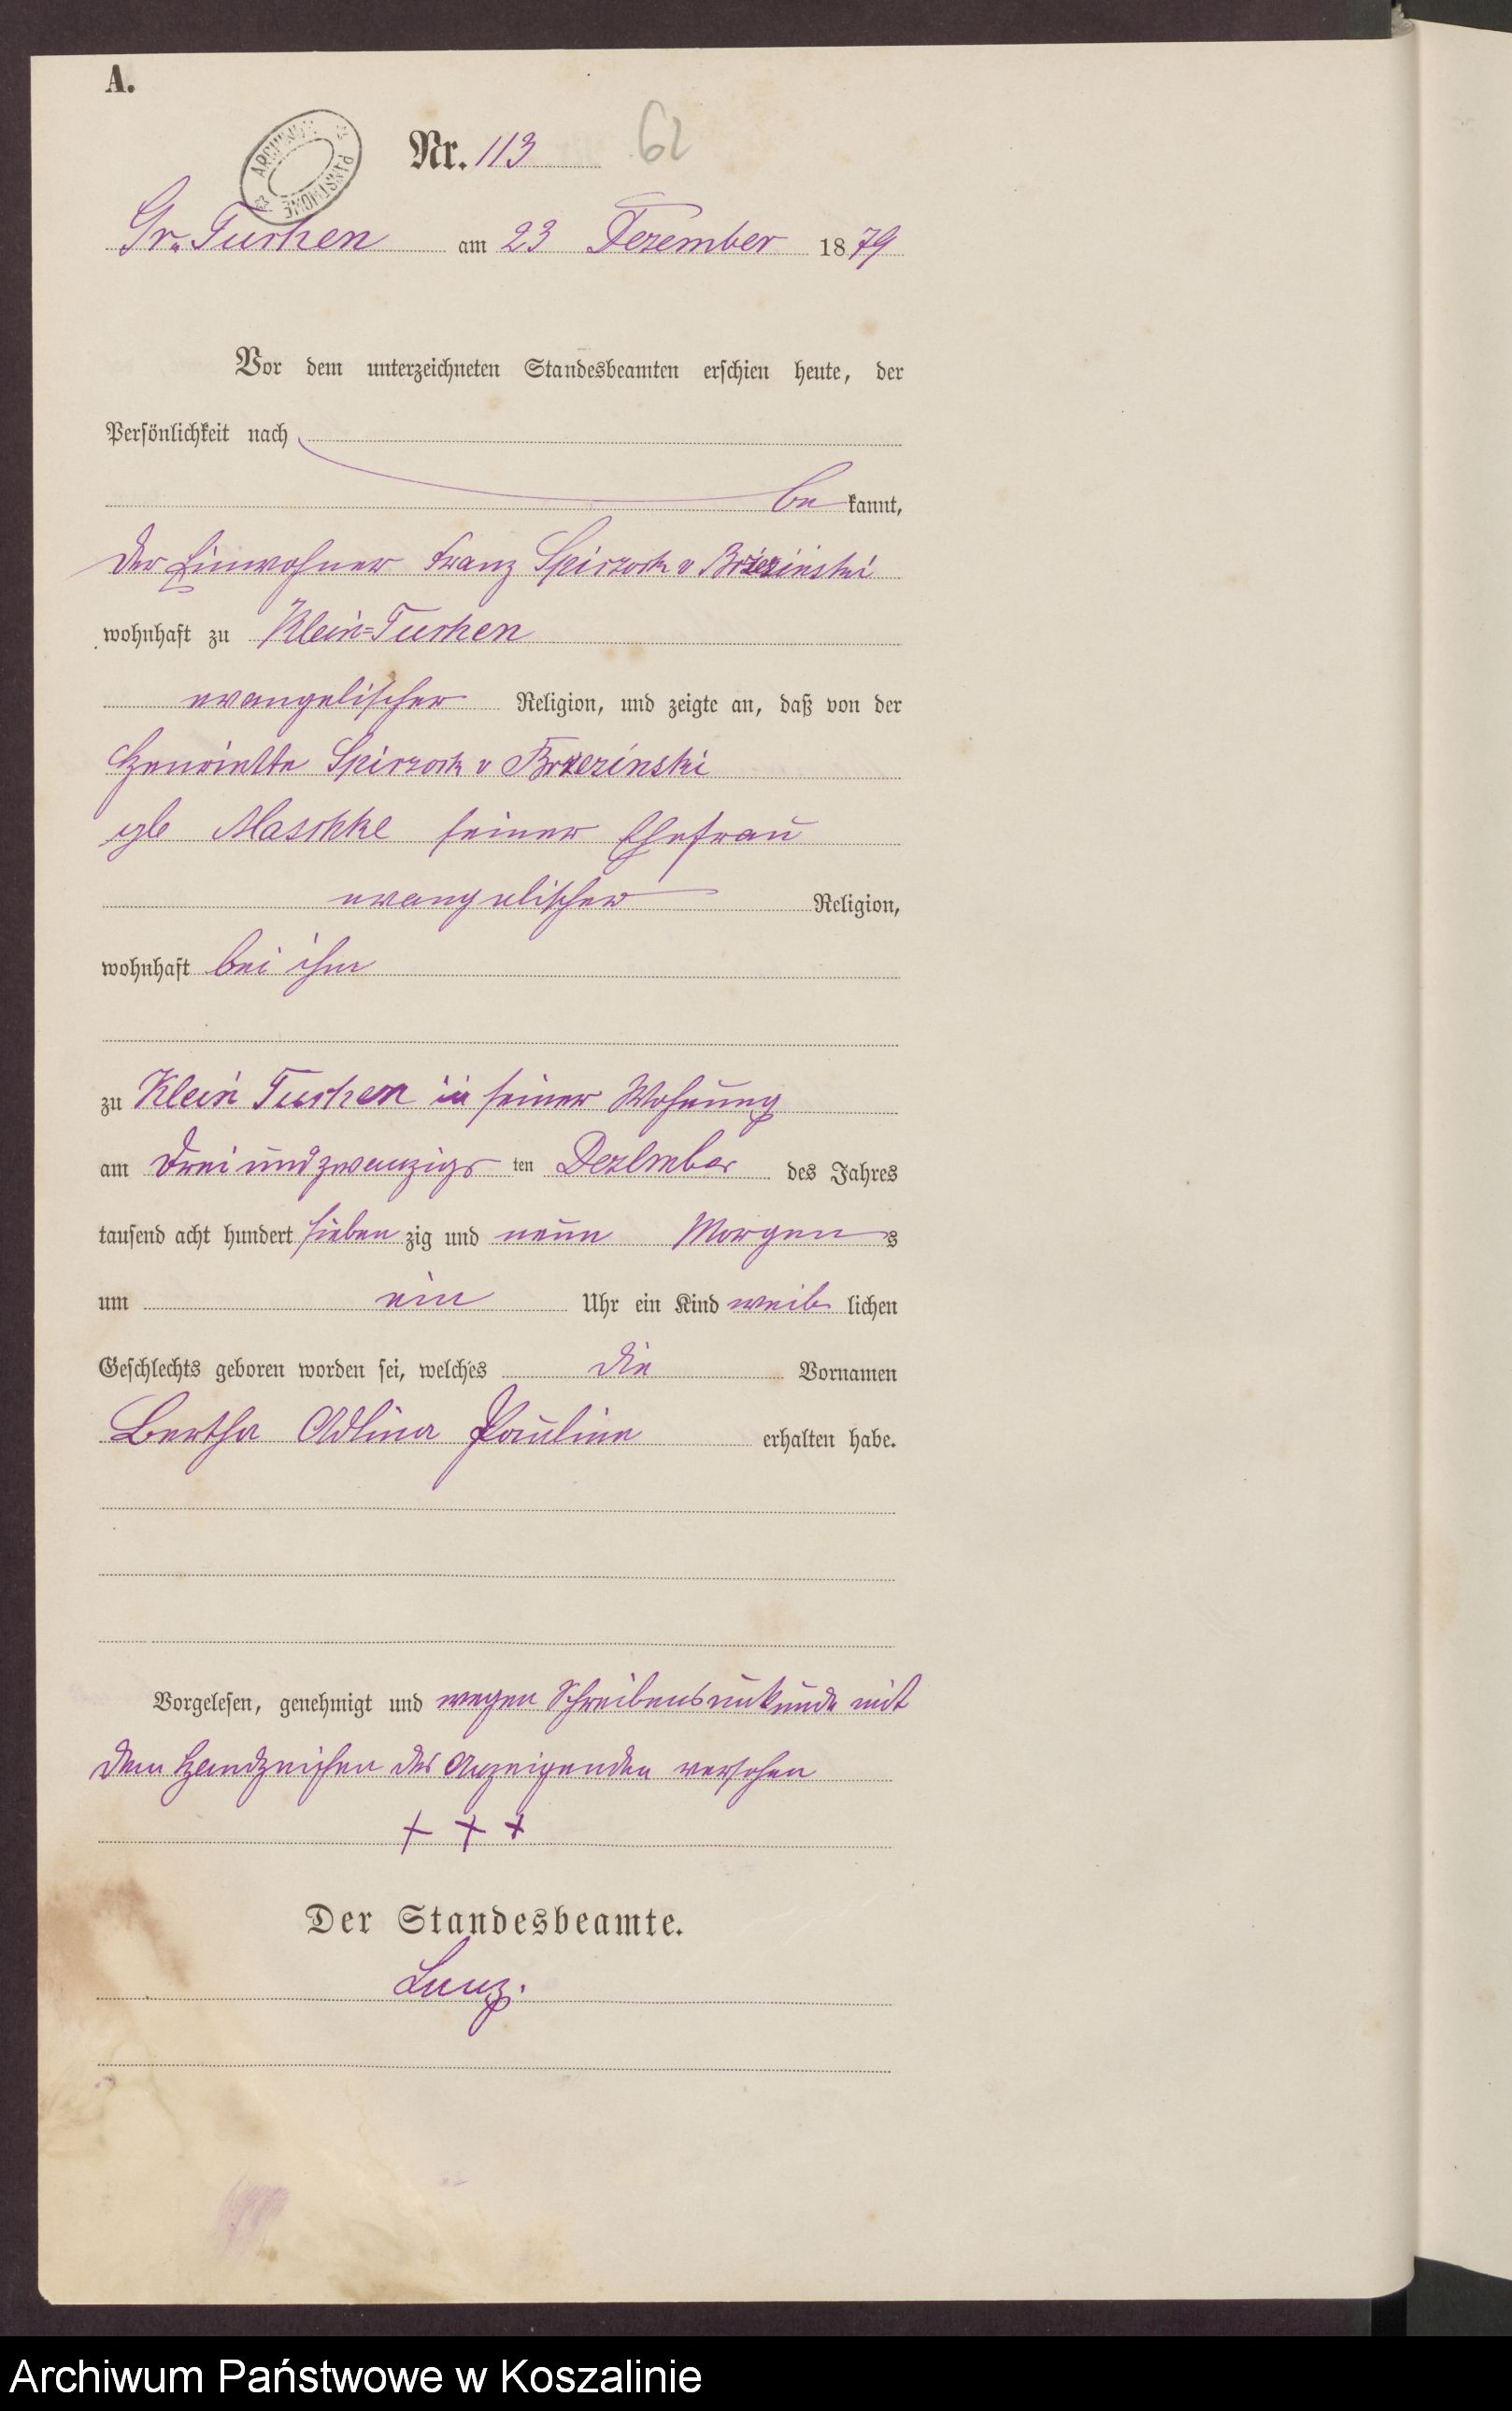 A.
ARCHIWUM PAŃSTWOWE
Nr. 113 62
Gr. Tuchen am 23 Dezember 1879
Vor dem unterzeichneten Standesbeamten erschien heute, der
Persönlichkeit nach
be kannt,
der Einwohner Franz Spiczock v Brzezinski
wohnhaft zu Klein=Tuchen
evangelischer Religion, und zeigte an, daß von der
Henriette Spiczock v Brzezinski
geb Maschke seiner Ehefrau
evangelischer Religion,
wohnhaft bei ihm
zu Klein Tuchen in seiner Wohnung
am dreiundzwanzigs ten Dezember des Jahres
tausend acht hundert sieben zig und neun Morgens
um ein Uhr ein Kind weib lichen
Geschlechts geboren worden sei, welches die Vornamen
Bertha Adline Pauline erhalten habe.
Vorgelesen, genehmigt und wegen Schreibensunkunde mit
dem Handzeichen des Anzeigenden versehen
+ + +
Der Standesbeamte.
Archiwum Państwowe w Koszalinie